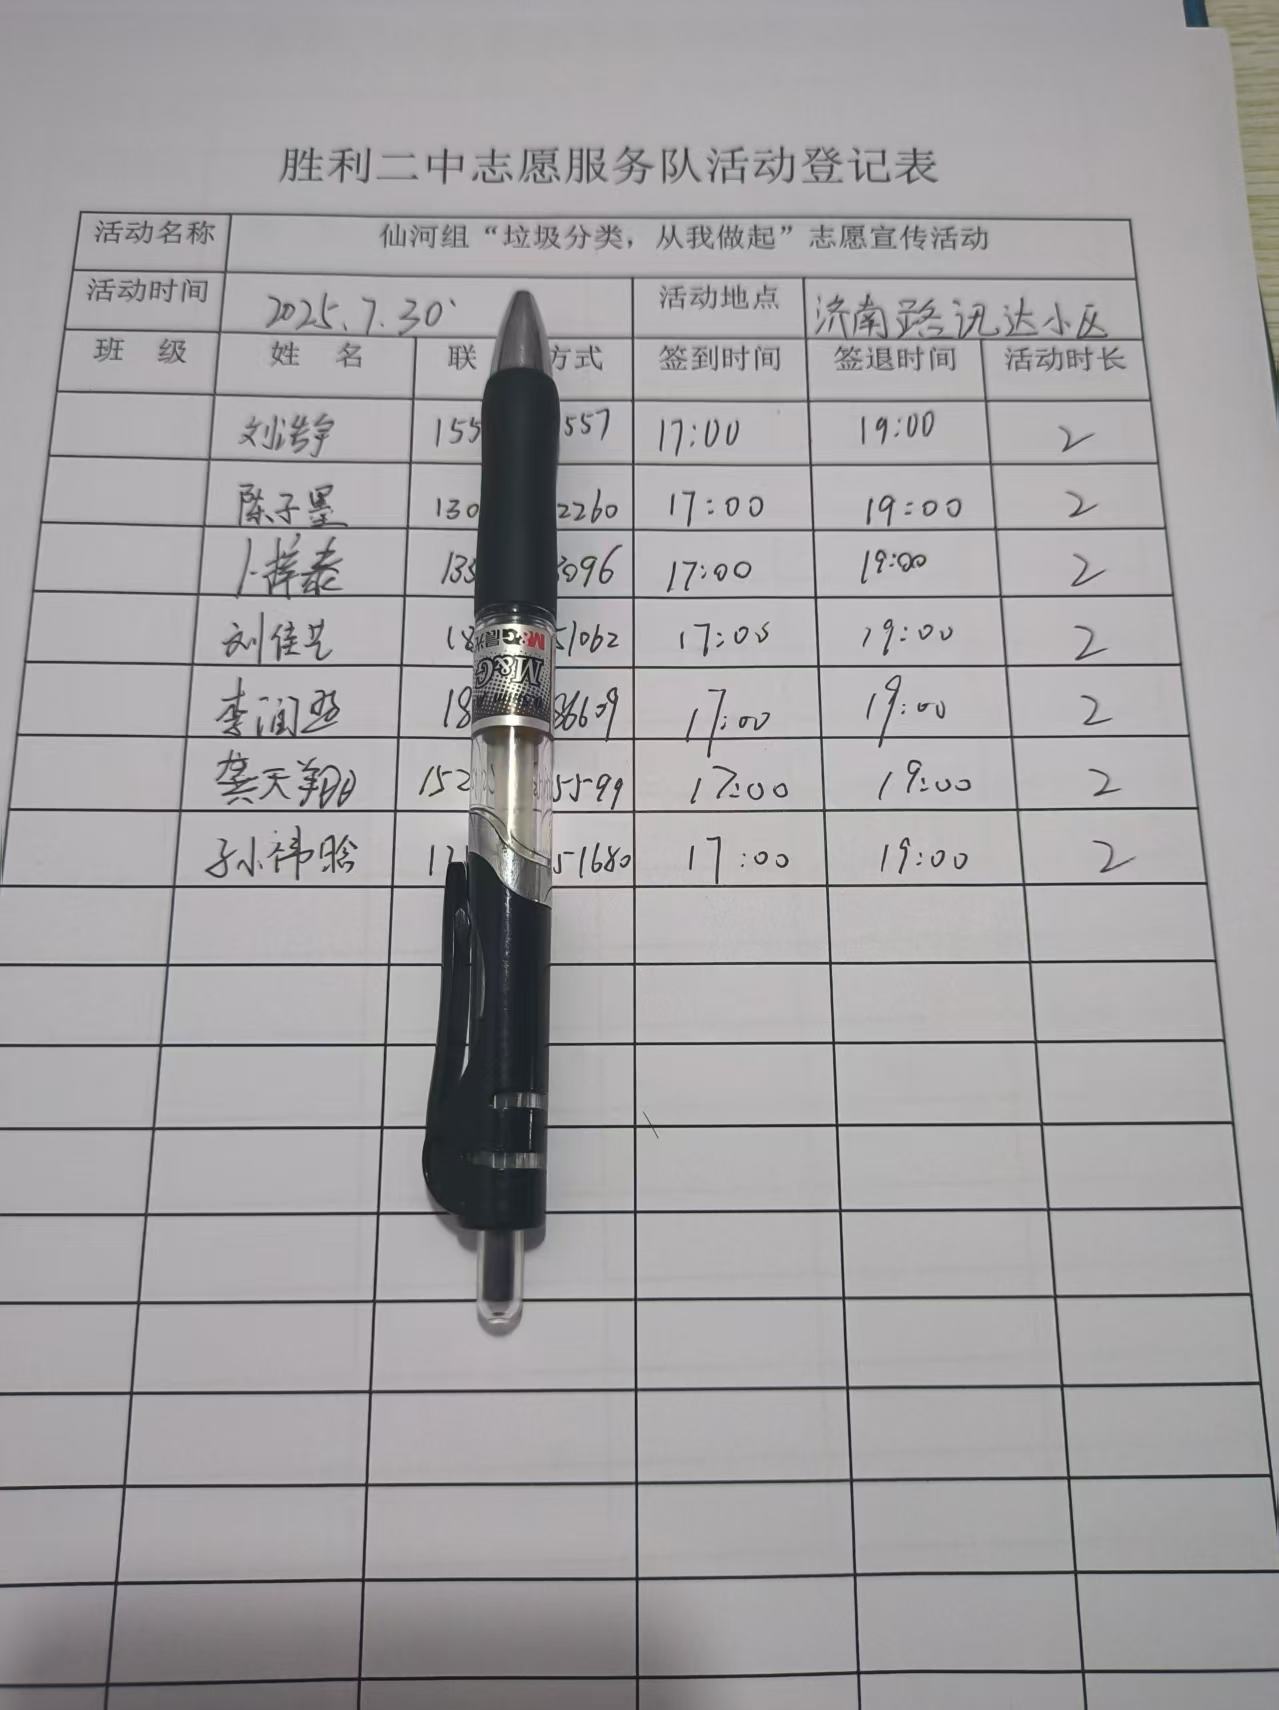 胜利二中志愿服务队活动登记表
活动名称 仙河组“垃圾分类，从我做起”志愿宣传活动
活动时间 2025.7.30 活动地点 济南路讯达小区
班 级 姓 名 联 方式 签到时间 签退时间 活动时长
刘浩宇 155 557 17:00 19:00 2
陈子墨 130 2260 17:00 19:00 2
133 3096 17:00 19:00 2
刘佳艺 18 51062 17:00 19:00 2
李润 18 36609 17:00 19:00 2
龚天翔 152 5599 17:00 19:00 2
孙祎晗 51680 17:00 19:00 2
M&G晨光
M&G